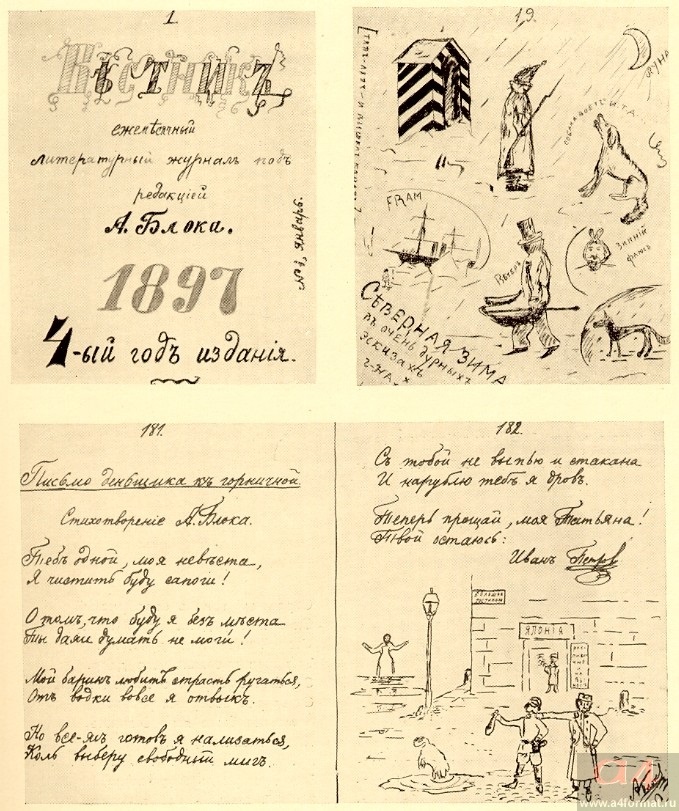 1.
Вѣстникъ
ежемѣсячный
литературный журналъ подъ
редакціей
А. Блока.
№ 1, январь.
1897
4-ый годъ изданія.
19.
ЛУНА
FRAM
ЗИМНІЙ
СѢВЕРНАЯ ЗИМА
ВЪ ОЧЕНЬ ДУРНЫХЪ
ЭСКИЗАХЪ
Г-НА
181.
Письмо деньщика къ горничной
Стихотвореніе А. Блока.
Тебѣ одной, моя невѣста,
Я чистить буду сапоги!
О томъ, что буду я безъ мѣста
Ты даже думать не моги!
Мой баринъ любитъ страсть ругаться,
Отъ водки вовсе я отвыкъ.
Но все-жъ готовъ я нализаться,
Коль выберу свободный мигъ.
182.
Съ тобой не выпью и стакана
И нарублю тебѣ я дровъ.
Теперь прощай, моя Татьяна!
Твой остаюсь:
Иванъ Петров
ЯПОНІЯ
www.a4format.ru